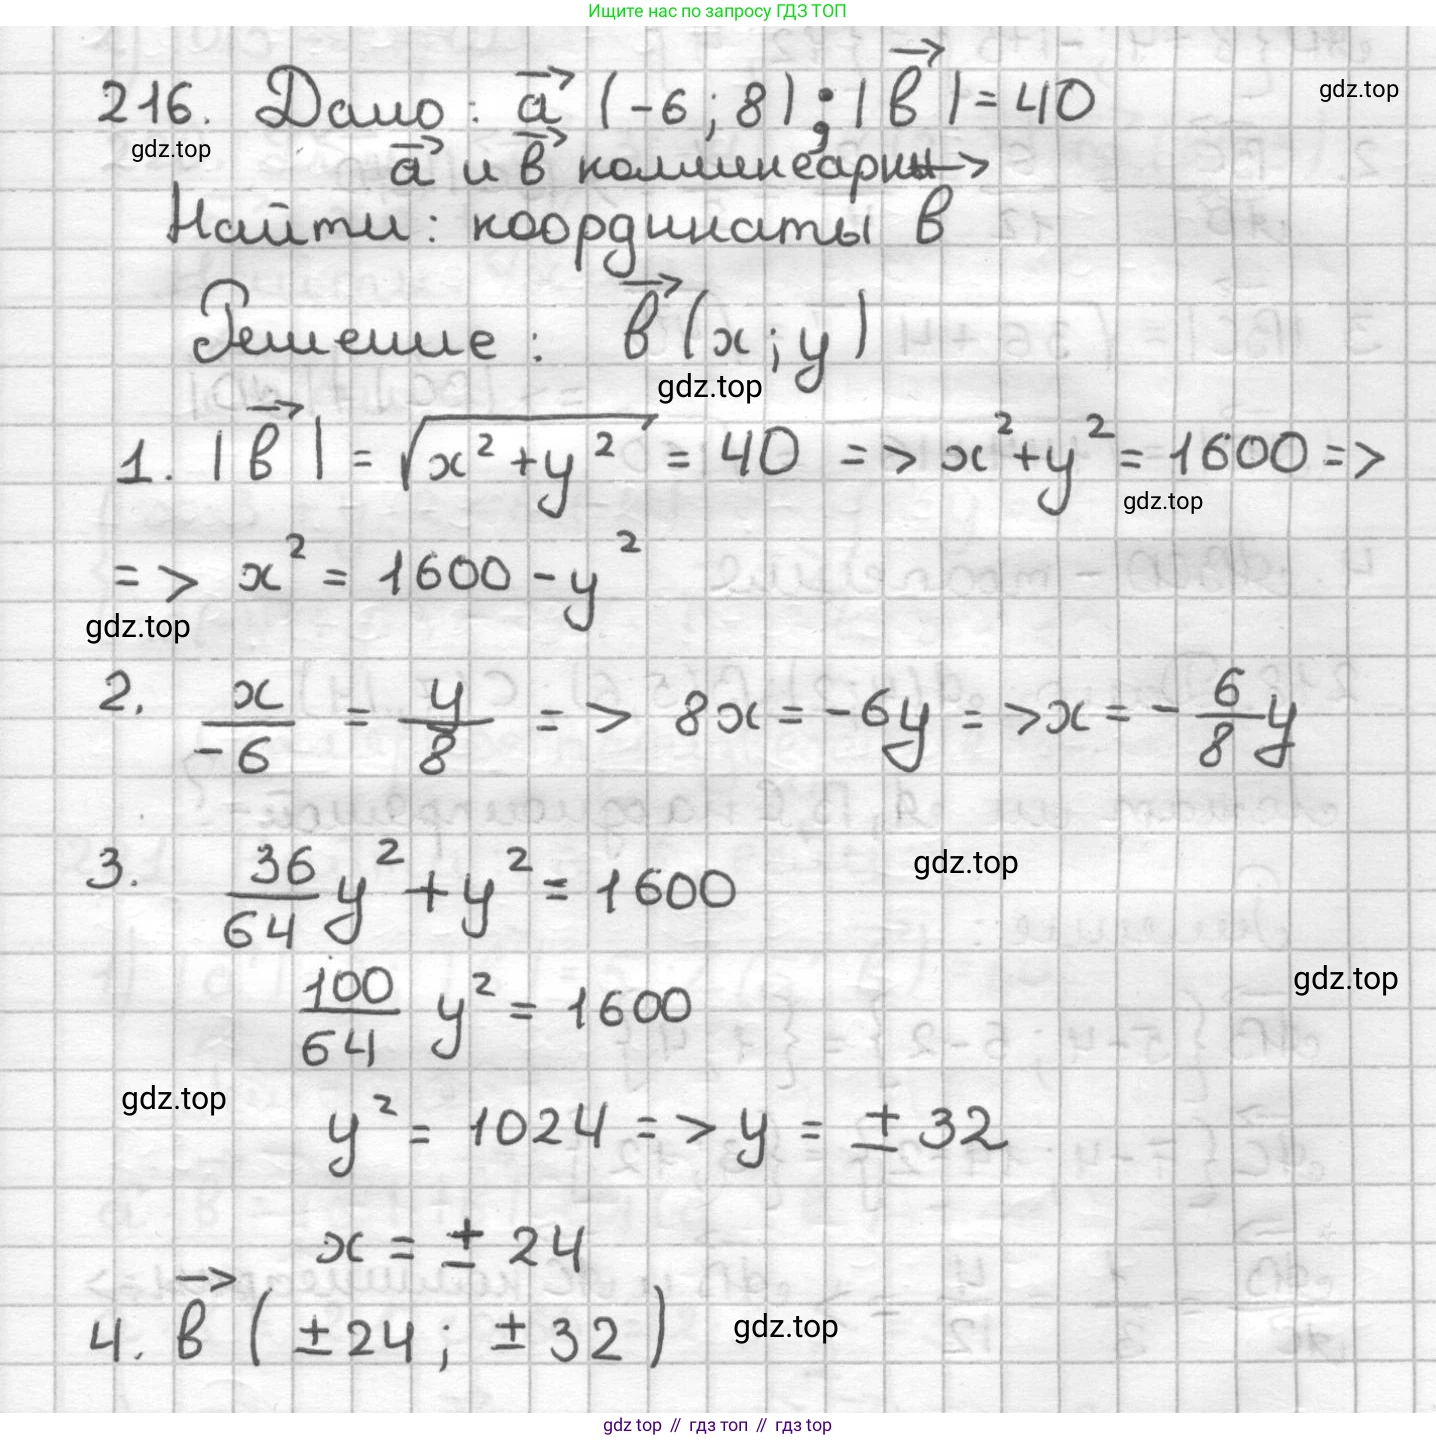 Ищите нас по запросу ГДЗ ТОП
216. Дано: a⃗ (-6; 8); |b⃗| = 40
gdz.top
gdz.top
a⃗ и b⃗ коллинеарны
Найти: координаты b⃗
Решение: b⃗ (x; y)
gdz.top
1. |b⃗| = √(x² + y²) = 40 => x² + y² = 1600 =>
gdz.top
=> x² = 1600 - y²
gdz.top
2. x/-6 = y/8 => 8x = -6y => x = - 6/8 y
3. 36/64 y² + y² = 1600
gdz.top
100/64 y² = 1600
gdz.top
gdz.top
y² = 1024 => y = ± 32
x = ± 24
4. b⃗ (± 24; ± 32)
gdz.top
gdz top // гдз топ // gdz.top